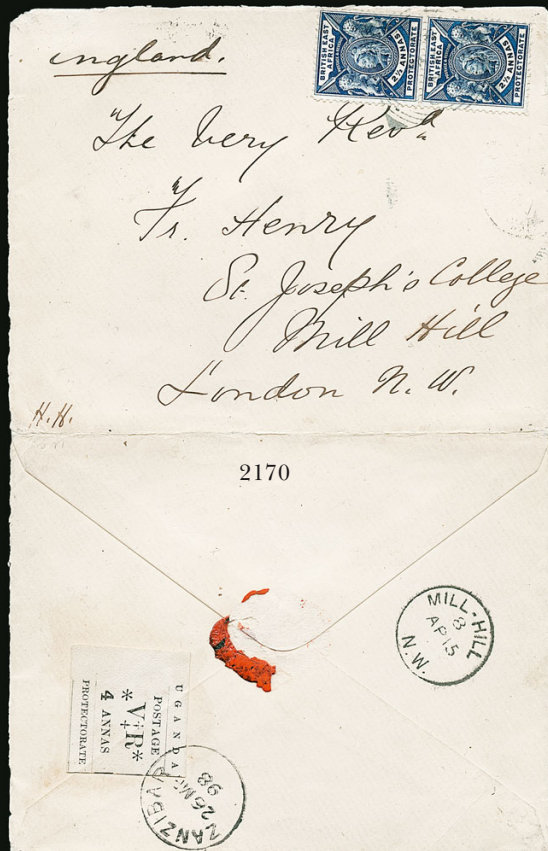 england.
BRITISH EAST
AFRICA
2½ ANNAS
PROTECTORATE
BRITISH EAST
AFRICA
2½ ANNAS
PROTECTORATE
The Very Revd
Fr. Henry
St. Joseph's College
Mill Hill
London N.W.
H.H.
2170
MILL-HILL
8
AP 15
N.W.
UGANDA
POSTAGE
*V+R*
4 ANNAS
PROTECTORATE
ZANZIBAR
26 MR
98